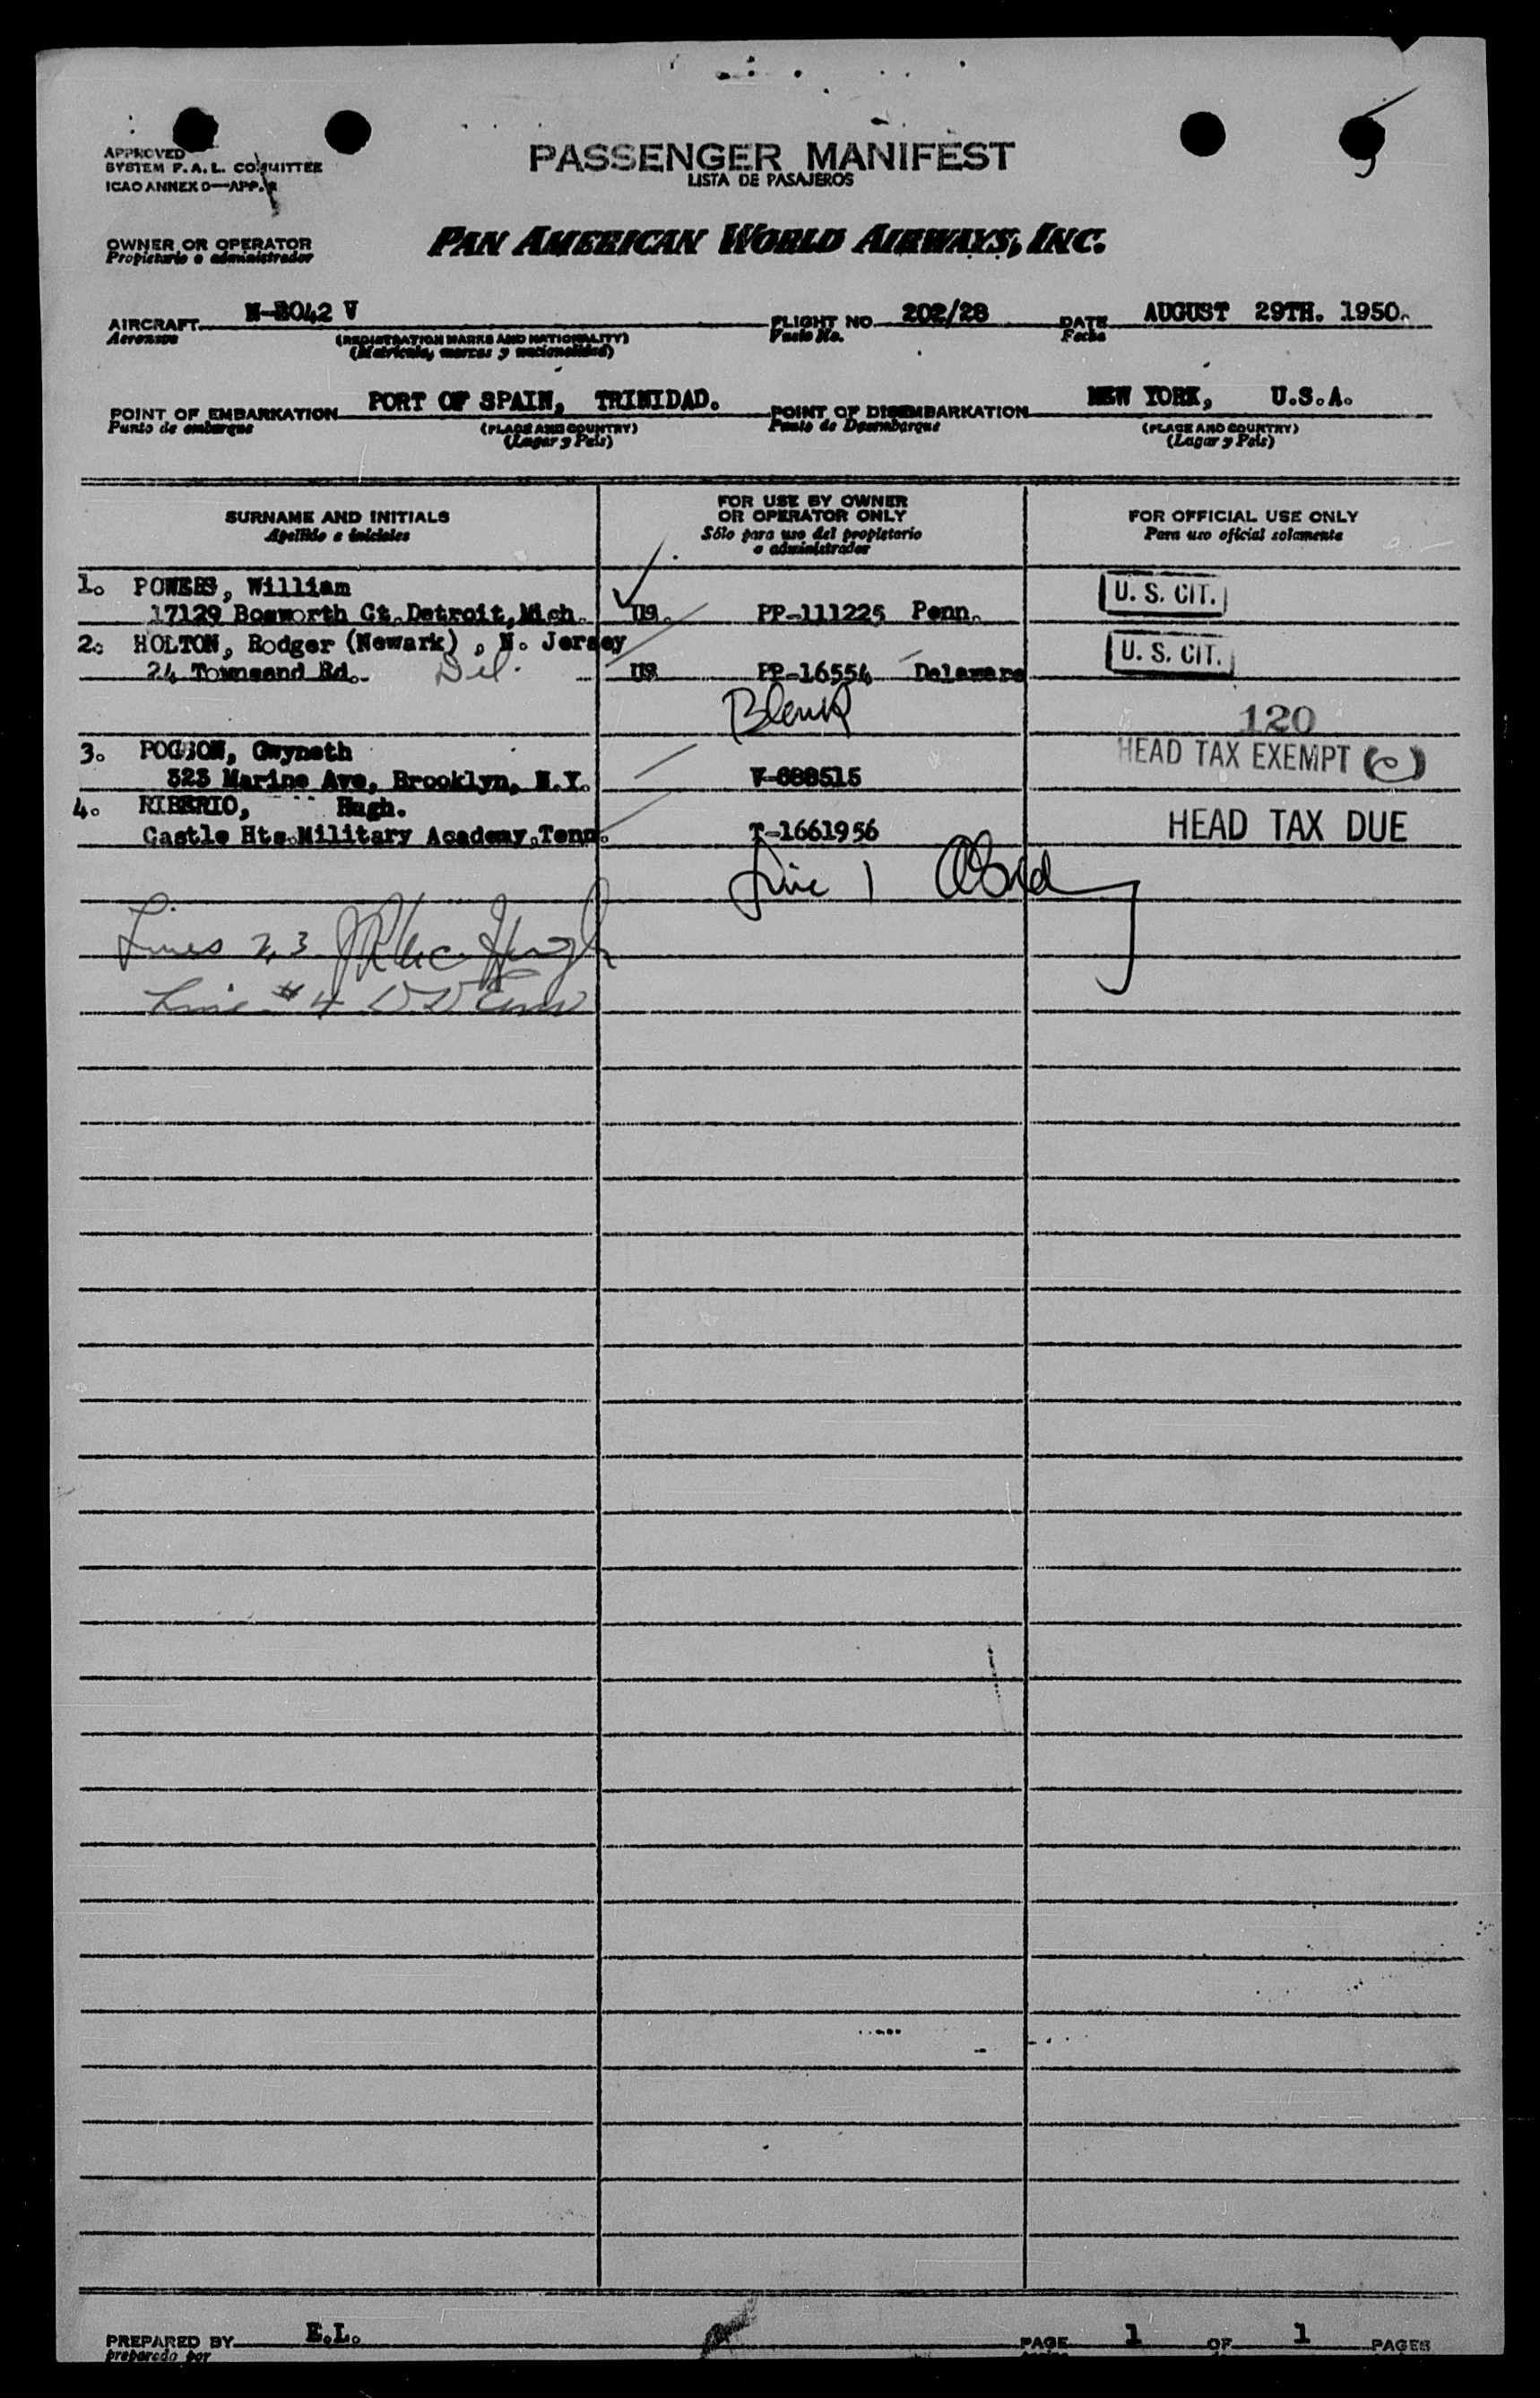 PASSENGER MANIFEST
LISTA DE PASAJEROS
APPROVED
SYSTEM F.A.L. COMMITTEE
ICAO ANNEX 9—APP.
PAN AMERICAN WORLD AIRWAYS, INC.
OWNER OR OPERATOR
Propietario o administrador
AIRCRAFT N-2042 V FLIGHT NO. 202/28 DATE AUGUST 29TH. 1950.
Aeronave (REGISTRATION MARKS AND NATIONALITY) Vuelo No. Fecha
(Matricula, marcas y nacionalidad)
POINT OF EMBARKATION PORT OF SPAIN, TRINIDAD. POINT OF DISEMBARKATION NEW YORK, U.S.A.
Punto de embarque (PLACE AND COUNTRY) Punto de Desembarque (PLACE AND COUNTRY)
(Lugar y País) (Lugar y País)
SURNAME AND INITIALS
Apellido e iniciales
FOR USE BY OWNER
OR OPERATOR ONLY
Sólo para uso del propietario
o administrador
FOR OFFICIAL USE ONLY
Para uso oficial solamente
1. POWERS, William U. S. CIT.
17129 Bosworth Ct. Detroit, Mich. US. PP-111225 Penn.
2. HOLTON, Rodger (Newark), N. Jersey U. S. CIT.
24 Townsend Rd. Del. US PP-16554 Delaware
120
3. Gwyneth HEAD TAX EXEMPT (c)
323 Marine Ave, Brooklyn, N.Y. V-688515
4. RIBERIO, Hugh.
Castle Hts. Military Academy, Tenn. T-1661956 HEAD TAX DUE
Line 1
Lines 2,3
Line #4
PREPARED BY E.L. PAGE 1 OF 1 PAGES
preparado por